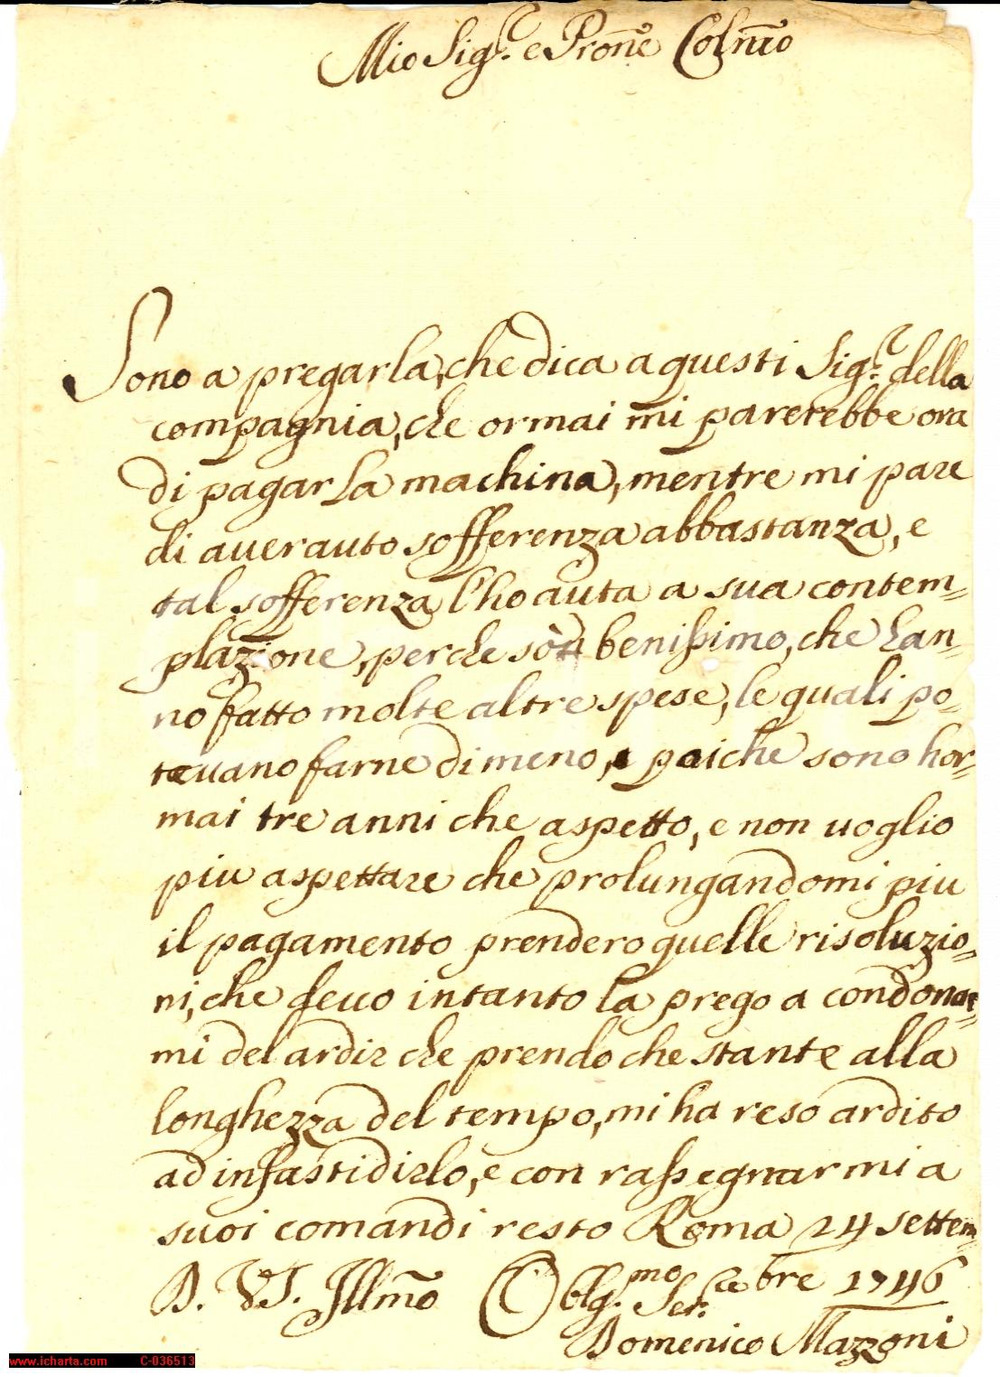 Mio Sig.r e Prone Colmo
Sono a pregarla, che dica a questi Sig.ri della
compagnia, che ormai mi parerebbe ora
di pagar la machina, mentre mi pare
di auer auto sofferenza abbastanza, e
tal sofferenza l'ho auta a sua contem=
plazione, perche sò benissimo, che han=
no fatto molte altre spese, le quali po=
teuano farne di meno, e poiche sono hor=
mai tre anni che aspetto, e non uoglio
piu aspettare che prolungandomi piu
il pagamento prendero quelle risoluzio=
ni, che deuo intanto la prego a condonar=
mi del ardir che prendo che stante alla
longhezza del tempo, mi ha reso ardito
ad infastidirlo, e con rassegnarmi a
suoi comandi resto Roma 24 settem=
bre 1746
D. V.S. Illmo Oblg.mo Ser.re
Domenico Mazzoni
www.icharta.com C-036513